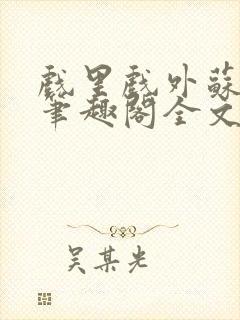 戲里戲外蘇
筆趣閣全文
吴某光